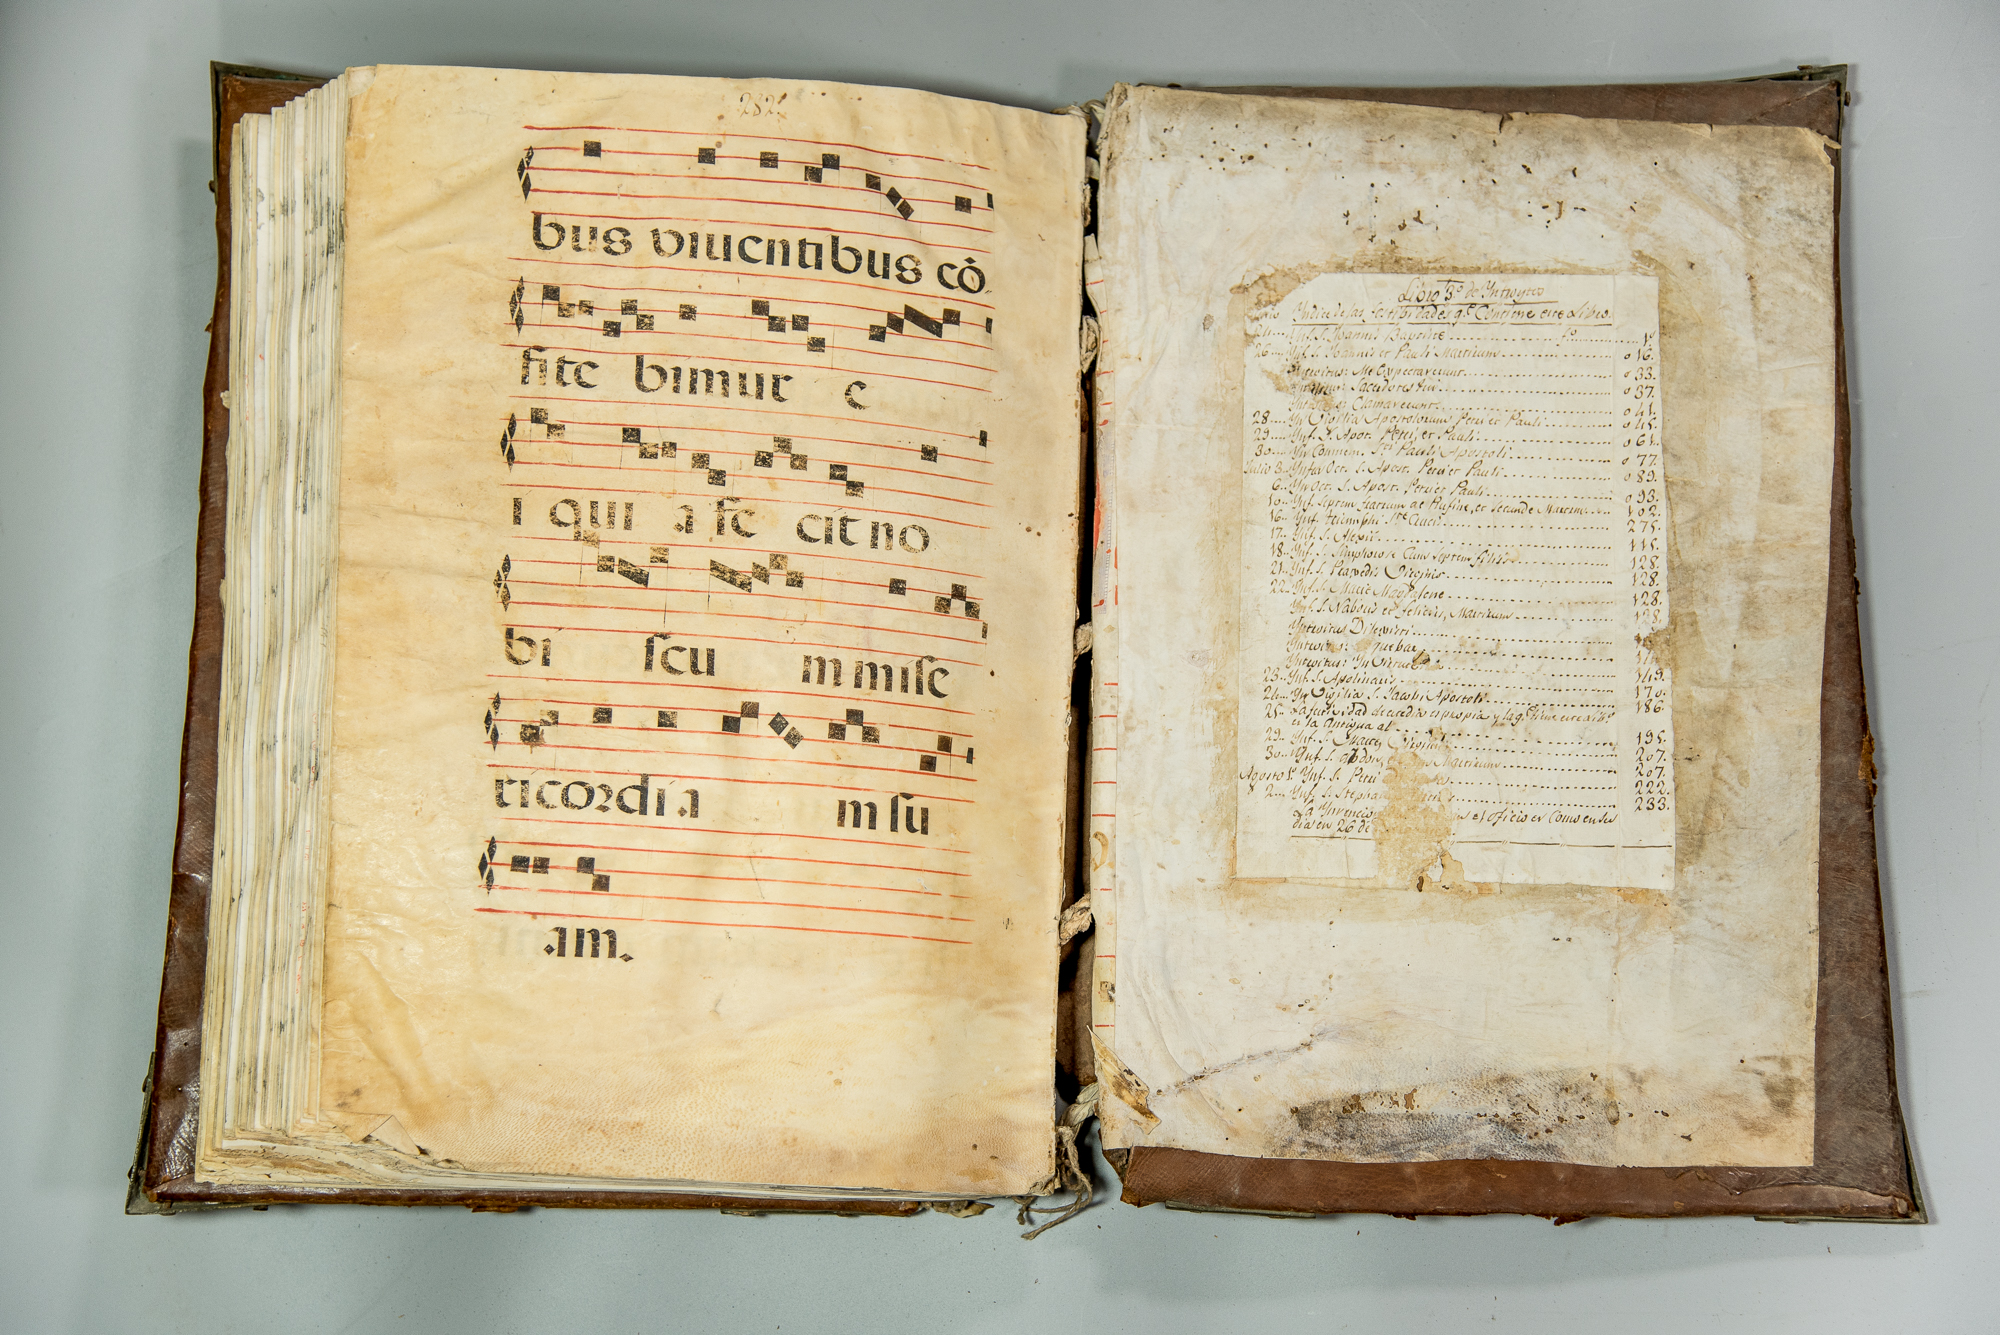 232
bus viuentibus cō
fite bimur e
i qui a fe cit no
bi scu m mise
ricordi a m su
am.
Libro 3º de Yntroytos
Yndice de las festibidades qe. Contiene este Libro.
24 Ynf. S. Joannis Baptiste fo. 1º
26 Ynf. S. Joannis et Pauli Martirum 16.
Introitus: Me Expectaverunt 33.
Sacerdotes tui 37.
Clamaverunt 41.
28 Yn Vigilia Apostolorum Petri et Pauli 45.
29 Ynf. S. Apos. Petri, et Pauli 61.
30 Yn Conmem. Sti. Pauli Apostoli 77.
Julio 3 Ynfra Oct. S. Apost. Petri et Pauli 89.
6 Yn Oct. S. Apost. Petri et Pauli 93.
10 Ynf. Septem fratrum ac Rufine, et Secunde Martirum 102.
16 Ynf. triumphi Ste. Crucis 275.
17 Ynf. S. Alexii 115.
18 Ynf. S. Simphorose Cum Septem filiis 128.
21 Ynf. S. Praxedis Virginis 128.
22 Ynf. S. Marie Magdalene 128.
Ynf. S. Naboris et felicis, Martirum 128.
Yntroitus Dilexisti
Yntroitus:
Yntroitus: Yn Virtute 149.
23 Ynf. S. Apolinaris 170.
24 Yn Vigilia S. Jacobi Apostoli 186.
25 La festividad de
es la Antigua al 195.
29 Ynf. S. Virginis 207.
30 Ynf. S. Abdon, Martirum 207.
Agosto 1º Ynf. S. Petri 222.
2 Ynf. S. Stephani 233.
La Ynvencion el oficio es Como en su
dia en 26 de